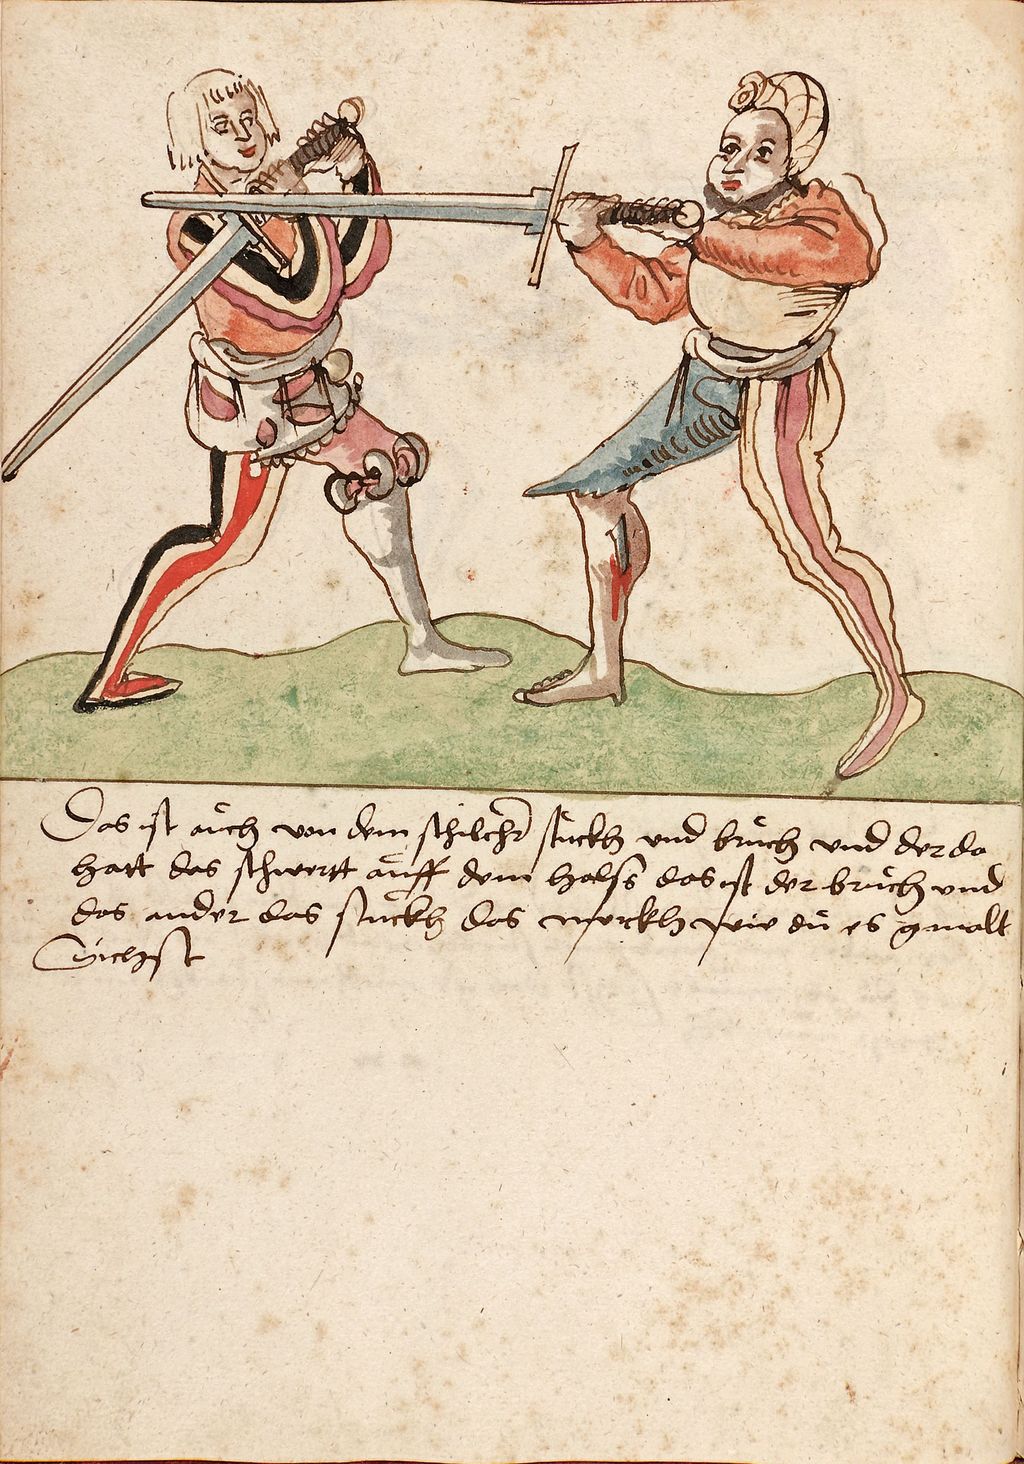 Das ist aůch von dem schilchr stůckh und brůch und der do
hatt das schwertt aůff dem halss das ist der brůch und
das ander das stůckh das merckh wie dů es gmalt
Sichst